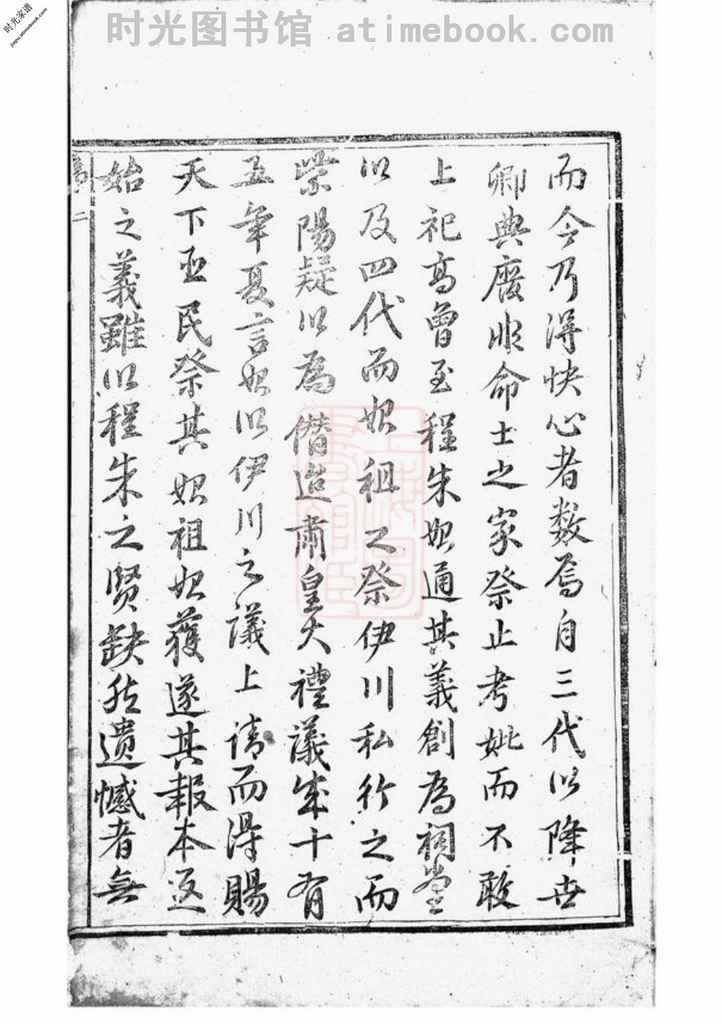 时光图书馆 atimebook.com
时光家谱
jiapu.atimebook.com
而今乃得快心者数焉自三代以降世
卿典废非命士之家祭止考妣而不敢
上祀高曾至程朱始通其義創為祠堂
以及四代而始祖之祭伊川私行之而
紫陽疑以為僭迨肅皇大禮議成十有
五年夏言始以伊川之議上請而得賜
天下臣民祭其始祖始獲遂其報本返
始之義雖以程朱之贤缺然遺憾者無
二